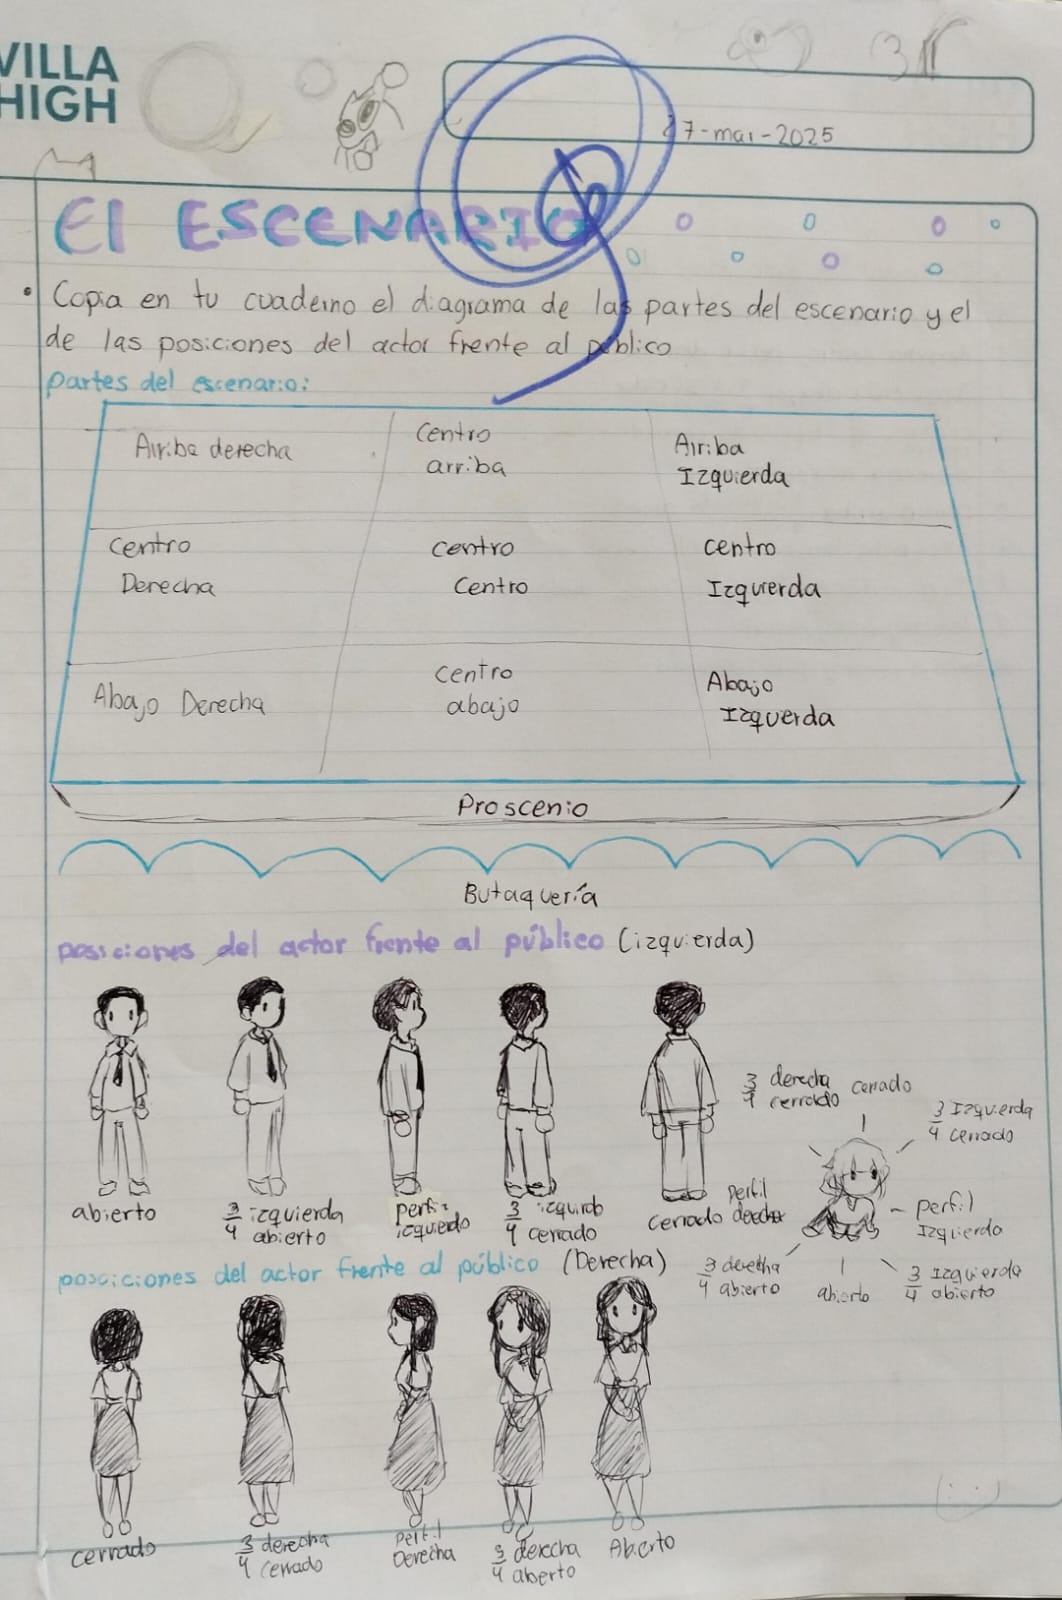 VILLA
HIGH
27-mar-2025
El ESCENARIO
• Copia en tu cuaderno el diagrama de las partes del escenario y el
de las posiciones del actor frente al público
partes del escenario:
Arriba derecha
Centro
arriba
Arriba
Izquierda
Centro
Derecha
Centro
Centro
Centro
Izquierda
Abajo Derecha
Centro
abajo
Abajo
Izquerda
Proscenio
Butaquería
posiciones del actor frente al público (izquierda)
abierto
3/4 izquierda
abierto
perfil
izquierdo
3/4
cerrado
cerrado
3/4 derecha
cerrado
cerrado
3/4 Izquierda
cerrado
perfil
Izquierdo
3/4 Izquierda
abierto
abierto
3/4 derecha
abierto
perfil
derecho
posiciones del actor frente al público (Derecha)
cerrado
3/4 derecha
cerrado
Perfil
Derecha
3/4 derecha
abierto
Abierto